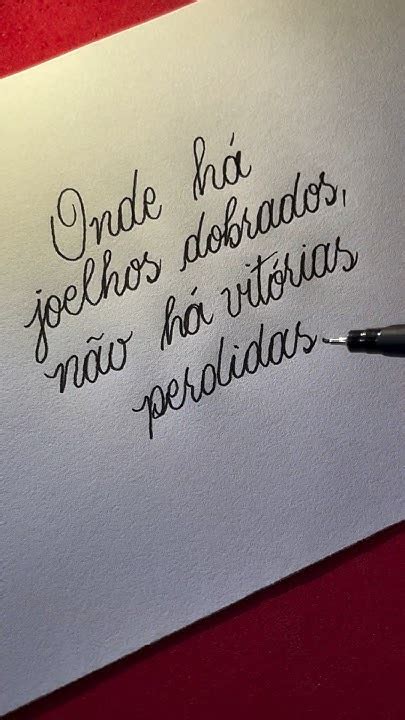 Onde há
joelhos dobrados,
não há vitórias
perdidas